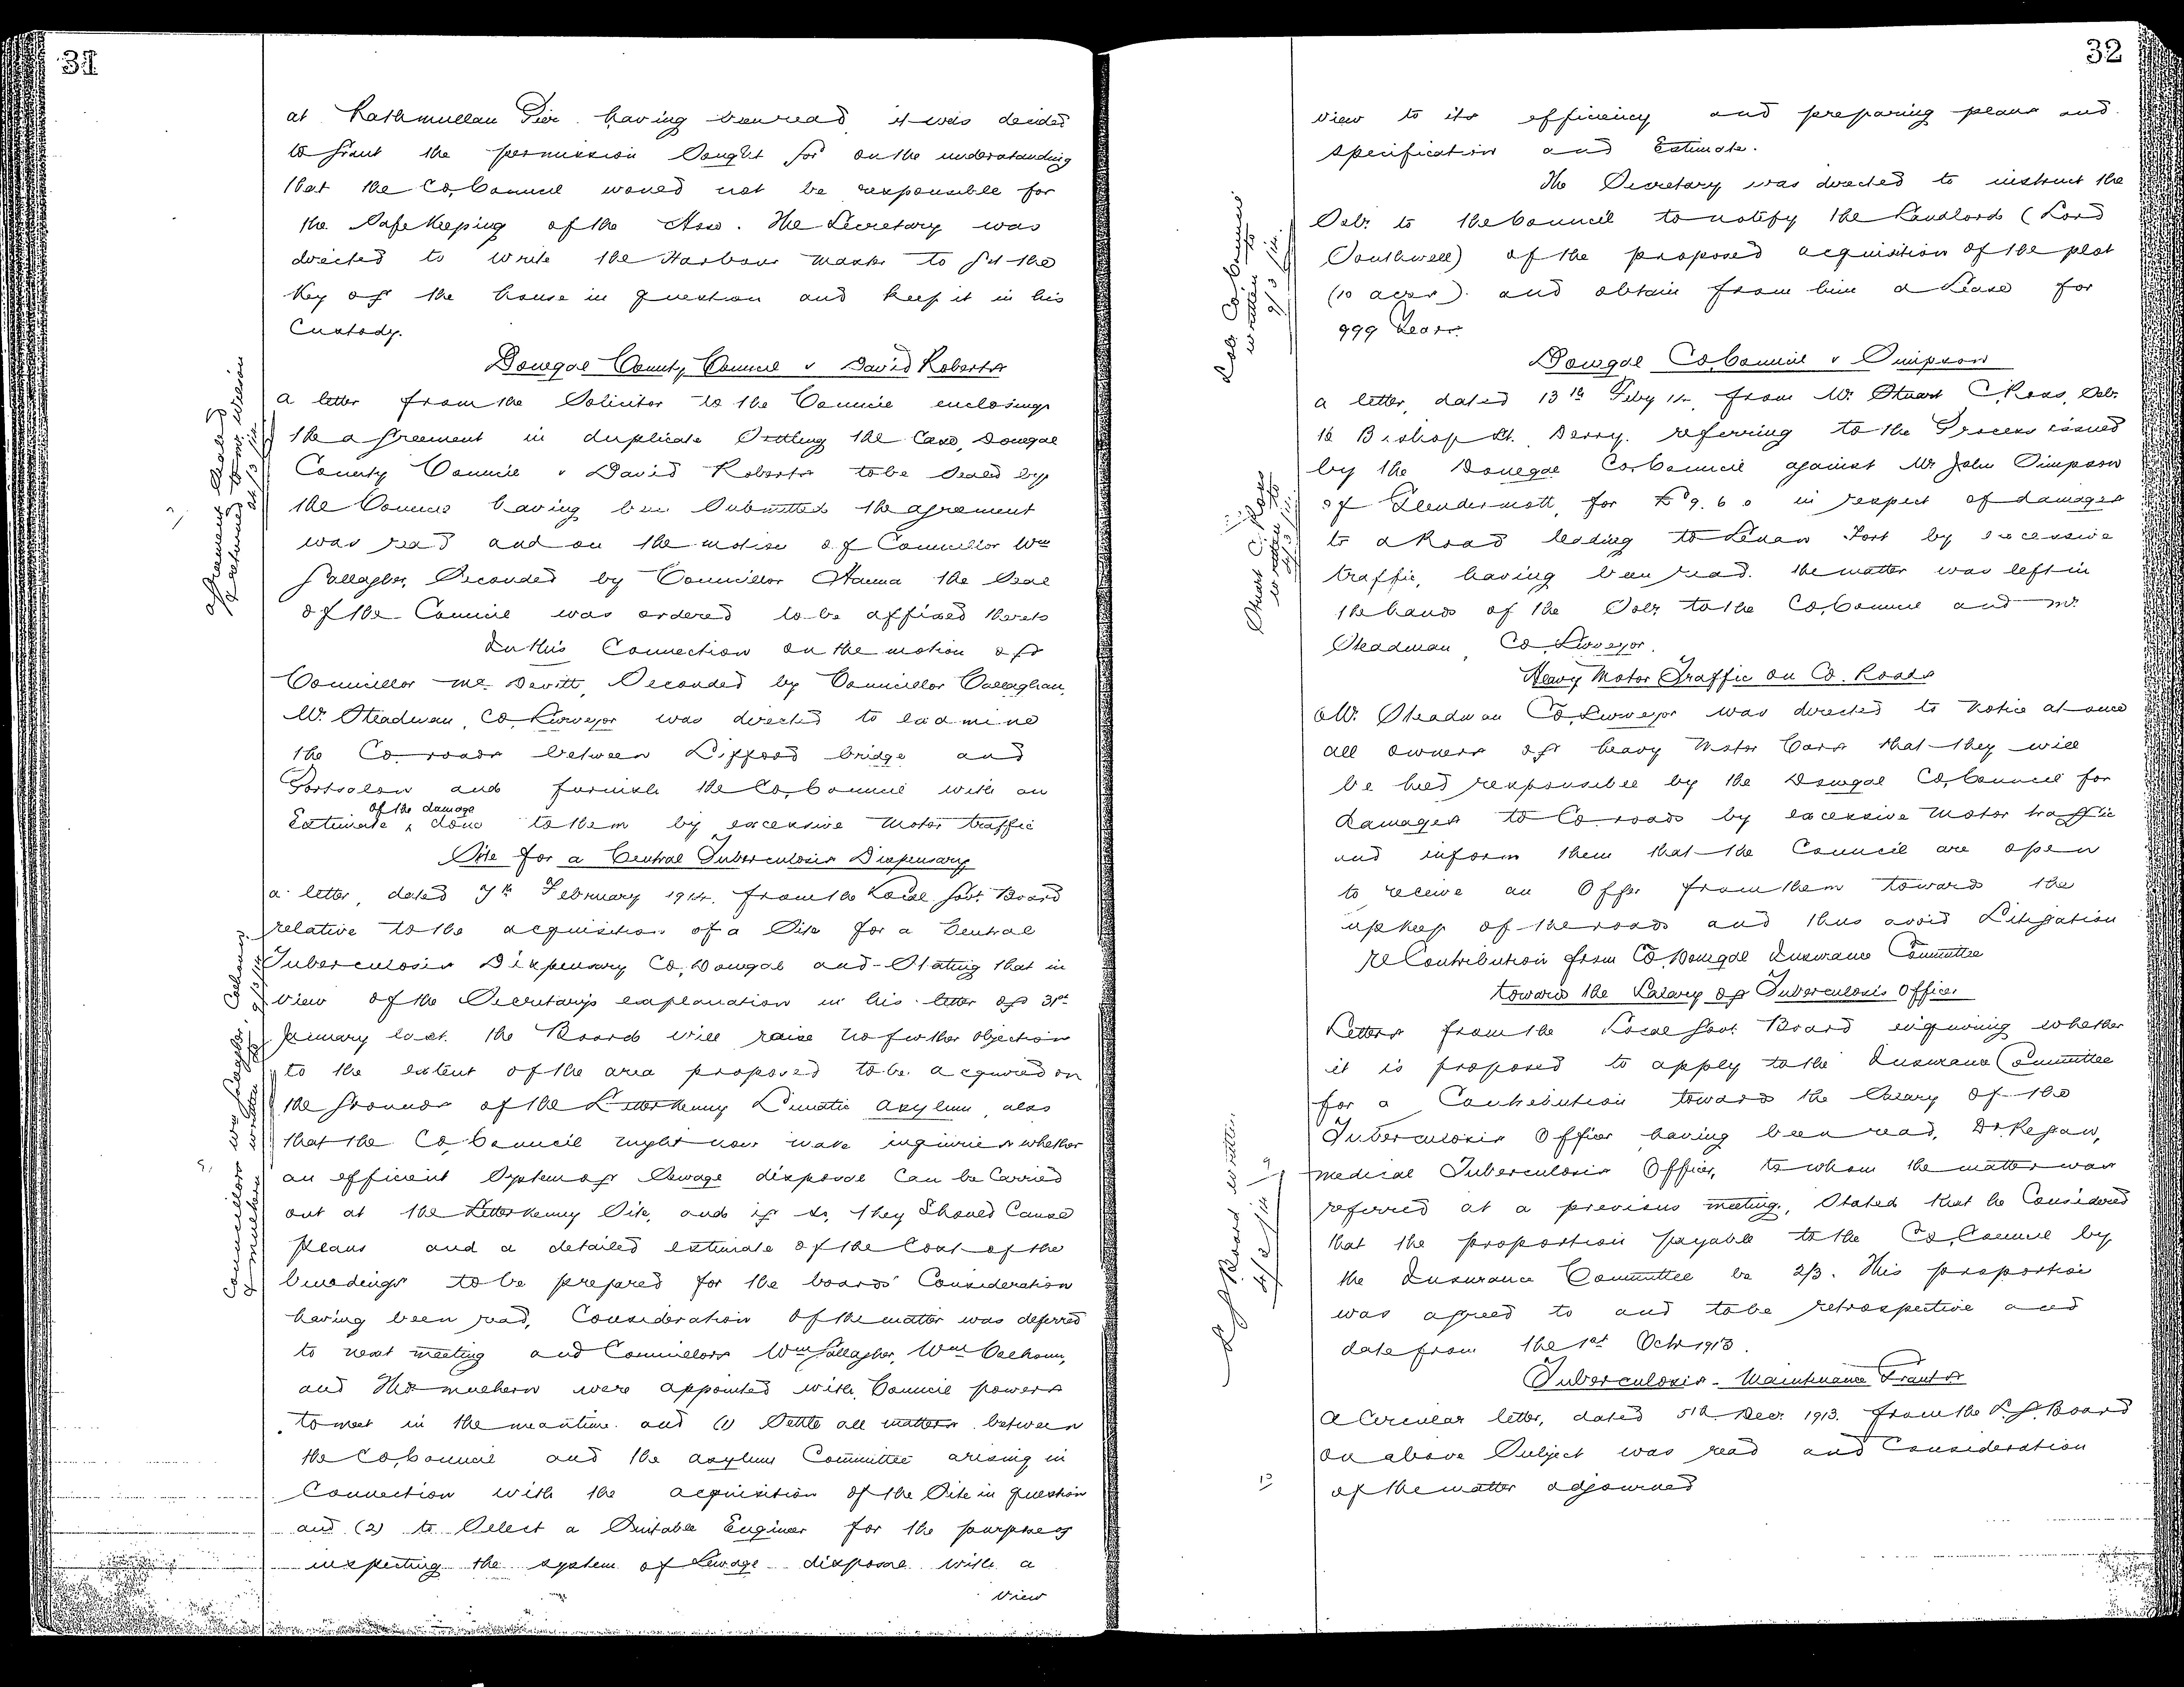 31
at Rathmullan Pier having been read it was decided
to grant the permission sought for on the understanding
that the Co, Council would not be responsible for
the safe keeping of the . The Secretary was
directed to write the Harbour Master to get the
key of the house in question and keep it in his
Custody.
Donegal County Council v David Roberts
a letter from the Solicitor to the Council enclosing
the agreement in duplicate Settling the Case, Donegal
County Council v David Roberts to be sealed by
the Council having been Submitted the agreement
was read and on the motion of Councillor Wm
Gallagher, Seconded by Councillor Hanna the Seal
of the Council was ordered to be affixed thereto
Agreement Sealed
& returned to
In this Connection on the motion of
Councillor Mc Devitt, Seconded by Councillor Callaghan,
Mr. Steadman, Co, Surveyor was directed to examine
the Co roads between Lifford bridge and
Portsalon and furnish the Co, Council with an
Estimate of the damage done to them by excessive motor traffic
Site for a Central Tuberculosis Dispensary
a letter, dated 7th February 1914. from the Local Govt. Board
relative to the acquisition of a Site for a Central
Tuberculosis Dispensary Co, Donegal and Stating that in
view of the Secretary's explanation in his letter of 31st
January last. the Board will raise no further objection
to the extent of the area proposed to be acquired on
the grounds of the Letterkenny Lunatic asylum, also
that the Co, Council might now make inquiries whether
an efficient System of Sewage disposal Can be Carried
out at the Letterkenny Site, and if so, they Should Cause
plans and a detailed estimate of the Cost of the
buildings to be prepared for the boards' Consideration
having been read, Consideration of the matter was deferred
to next meeting and Councillors Wm Gallagher, Wm Colhoun,
and Thos mulhern were appointed with Council powers
to meet in the meantime and (1) Settle all matters between
the Co, Council and the asylum Committee arising in
Connection with the acquisition of the Site in question
and (2) to Select a Suitable Engineer for the purpose of
inspecting the system of Sewage disposal with a
view
Councillors Wm Gallagher, Colhoun
& mulhern written to 9/3/14
32
view to its efficiency and preparing plans and
specification and Estimate.
The Secretary was directed to instruct the
Solr. to the Council to notify the Landlord (Lord
Southwell) of the proposed acquisition of the plot
(10 acres). and obtain from him a Lease for
999 Years.
Solr Co, Council
written to
9/3/14.
Donegal Co, Council v Simpson
a letter, dated 13th Feby 14, from Mr. Stuart C, Ross, Solr.
16 Bishop St. Derry. referring to the Process issued
by the Donegal Co, Council against Mr John Simpson
of Glendermott, for £ 9. 6 0 in respect of damages
to a Road leading to Lenan Fort by excessive
traffic, having been read. the matter was left in
the hands of the Solr to the Co, Council and Mr.
Steadman, Co, Surveyor.
Stuart C. Ross
written to
Heavy Motor Traffic on Co. Roads
Mr. Steadman Co, Surveyor was directed to Notice at once
all owners of heavy Motor Cars that they will
be held responsible by the Donegal Co, Council for
damages to Co roads by excessive Motor traffic
and inform them that the Council are open
to receive an Offer from them towards the
upkeep of the roads and thus avoid Litigation
re Contribution from Co. Donegal Insurance Committee
towards the Salary of Tuberculosis Officer
Letters from the Local Govt. Board enquiring whether
it is proposed to apply to the Insurance Committee
for a Contribution towards the Salary of the
Tuberculosis Officer having been read, Dr. Regan,
medical Tuberculosis Officer, to whom the matter was
referred at a previous meeting, Stated that he Considered
that the proportion payable to the Co, Council by
the Insurance Committee be 2/3. This proportion
was agreed to and to be retrospective and
date from the 1st Octr 1913.
L G Board written
Tuberculosis - Maintenance Grants
A Circular letter, dated 5th Decr. 1913. from the L. G. Board
on above Subject was read and Consideration
of the matter adjourned